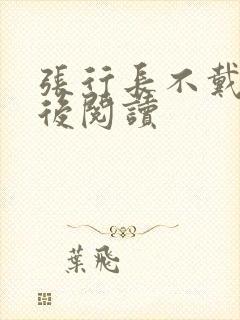 張行長不戴
後閱讀
葉飛